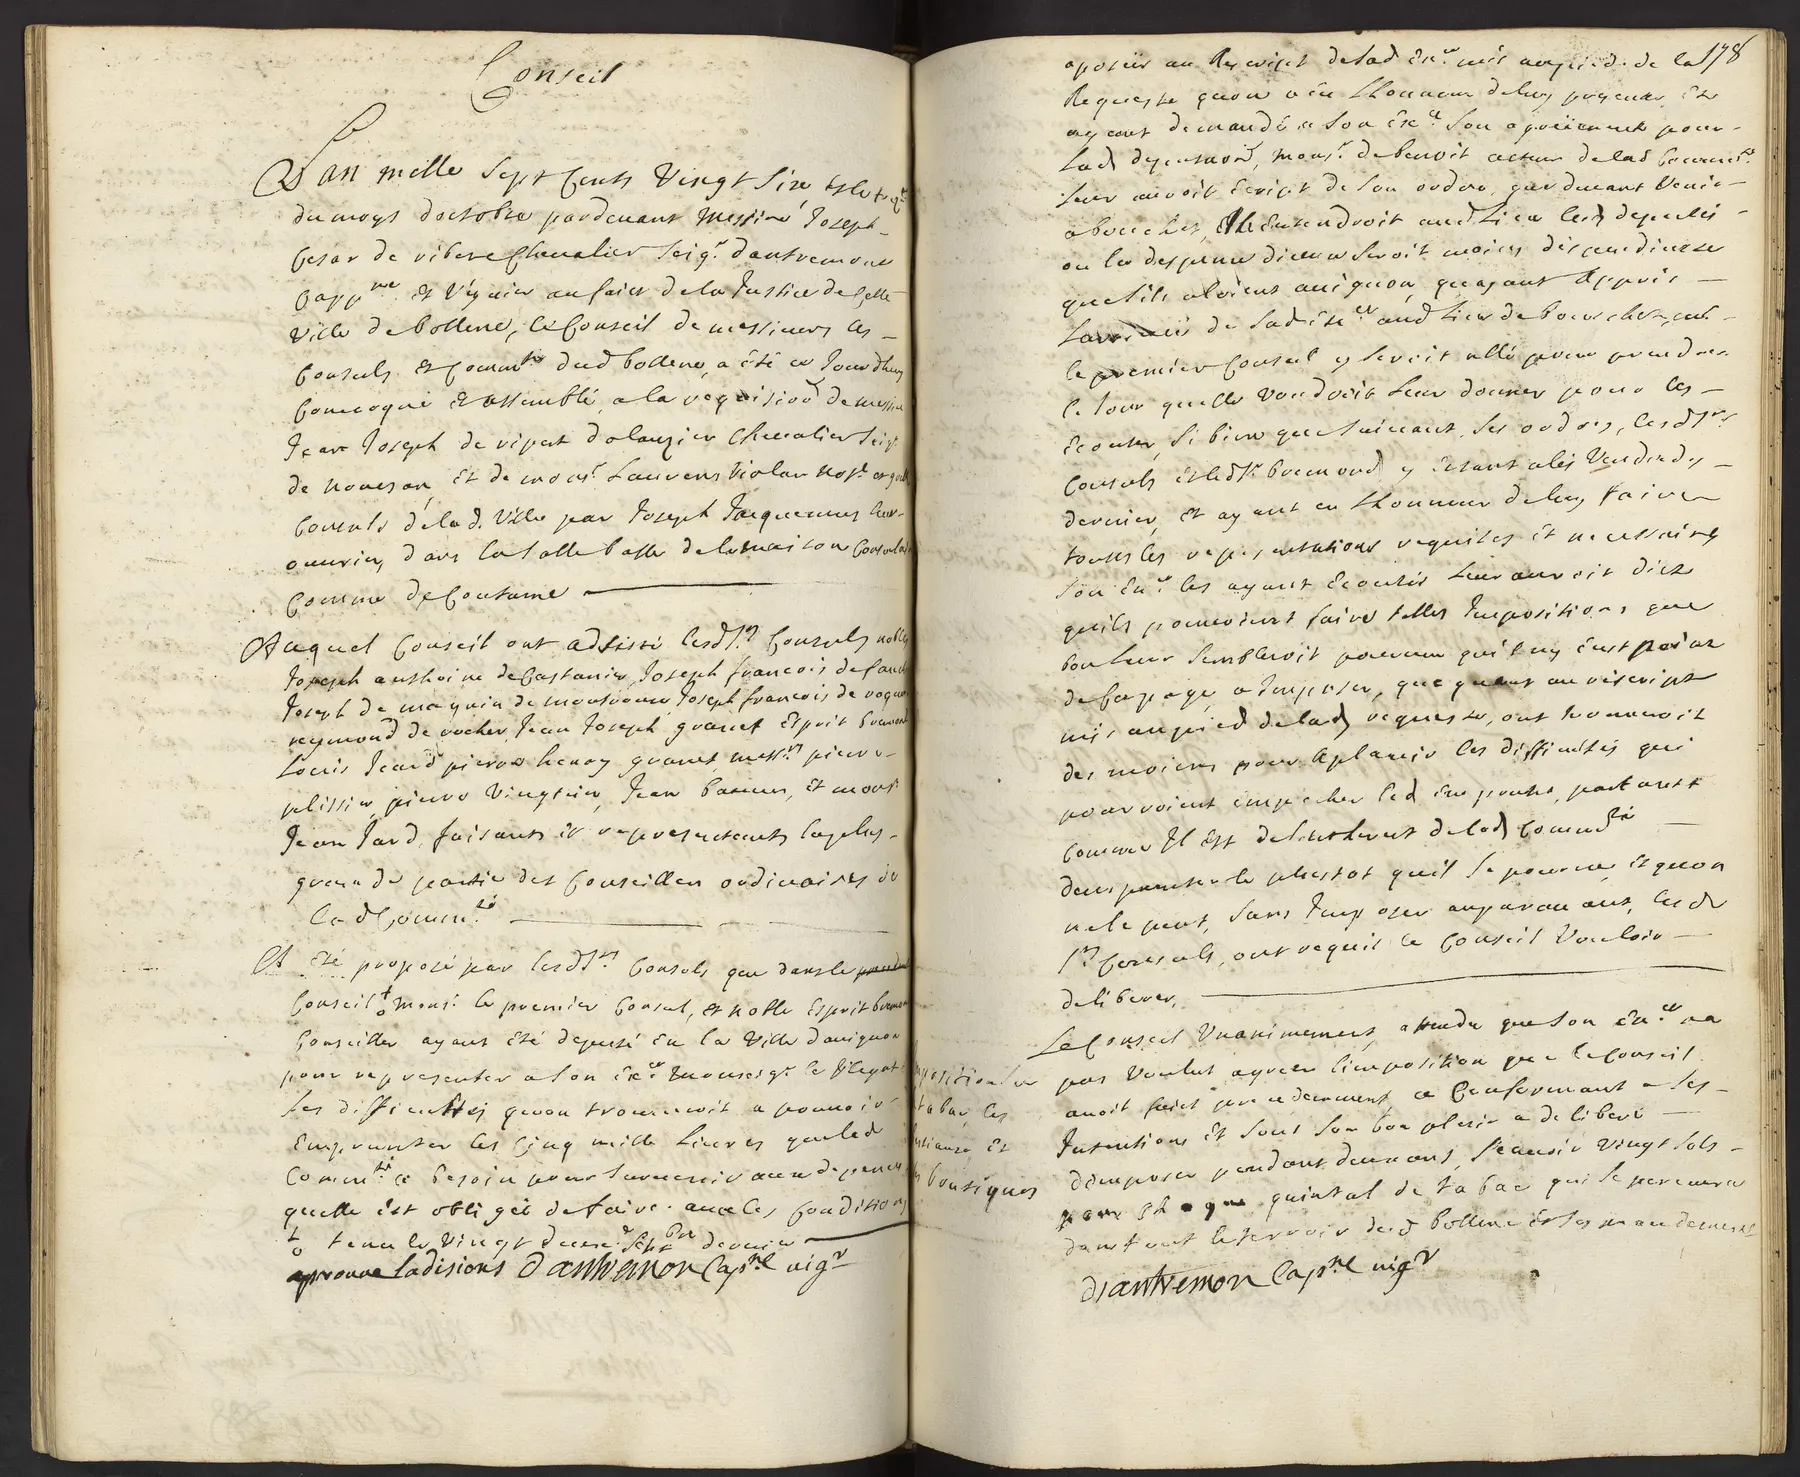 Conseil
L'an mille Sept Cents Vingt Six, et le
du moys d'octobre pardevant Messire Joseph
Cesar de ribere Chevalier Seigr. dantremont
Capp.ne et Viguier au faict de la Justice de Cette
Ville de bollene, le Conseil de messieurs les
Consuls et Commté. dud bollene, a été ce Jourdhuy
Convoqué et assemblé, a la requisition de messire
Jean Joseph de ripert dolauzier Chevalier Seigr
de novesan, et de monsr. Laurens Violan nore.
Consuls de lad. Ville par Joseph Jacquemus
dans la Salle basse de la maison Consulaire
Comme de Coutume
Auquel Conseil ont adsisté lesd. Srs Consuls nobles
Joseph anthoine de Castanier, Joseph francois de
Joseph de Joseph francois de
reymond de rocher, Jean Joseph granet Esprit bremond
Louis Icard pierre henry granet, messrs pierre
plissier, pierre Vingtrier, Jean et monsr
Jean Jard, faisants et representants la plus
grande partie des Conseillers ordinaires de
la d Commté.
A Eté proposé par lesd. Srs Consuls que dans le
Conseil + monsr. le premier Consul, et noble Esprit bremond
Conseiller ayant été deputé En la Ville davignon
pour representer a Son Exce. monseigr. le Vicelegat
les difficultés quon trouvoit a pouvoir
Emprunter les Cinq mille Livres que lad
Commté. a besoin pour Survenir aux depences
quelle est obligée de faire. avec les Conditions
+ tenu le Vingt deux Sepbre dernier
aprouve Ladisions Dantremon Capne vigr
178
aposées au Rescript de lad Exce. mis au pied de la
Requeste quon a eu Lhonneur de luy presenter, Et
ayant demandé a Son Exce. Son agreement pour
Lad deputation, monsr. de benoit acteur de lad Commté.
leur auroit Escript de Son ordre, que devant Venir
a bouchet, Il Entendroit aud Lieu lesd deputés
ou la despence diceux Seroit moins dispendieuse
que Sils aloient avignon, quayant Appris
Larrivée de Sad Exce. aud Lieu de bouchet,
le premier Consul y Seroit allé pour prendre
le Jour quelle Voudroit leur donner pour les
Ecouter, Si bien que Suivant Ses ordres, lesd. Srs
Consuls et led. Sr. bremond y Estant alés Vendredy
dernier, et ayant eu Lhonneur de luy faire
toutes les representations requises et necessaires
Son Exce. les ayant Ecoutés leur auroit dict
quils pouvoient faire telles Impositions que
bon leur Sembleroit pourveu quil ny eust point
de Capage a Imposer, que quant au rescript
mis au pied de lad requeste, ont trouveroit
des moiens pour Aplanir les difficultés qui
pourroient empecher led Emprunt, partant
Comme Il est de linterest de lad Commté
demprunter le plustot quil Se pourra, et quon
ne le peut, Sans Imposer auparavant, lesd.
Srs Consuls, ont requis le Conseil Vouloir
deliberer.
Le Conseil Unanimement, attendu que Son Exce. na
pas Voulut agreer limposition que le Conseil
avoit faict precedemment, ce Conformant a Ses
Intentions et Sous Son bon plesir a deliberé
dimposer pendant deux ans, Scavoir Vingt Sols
pour chaque quintal de tabac qui Se percevra
dans tout le terroir dud bollene
position Sur
tabac, les
et
boutiques
Dantremon Capne vigr